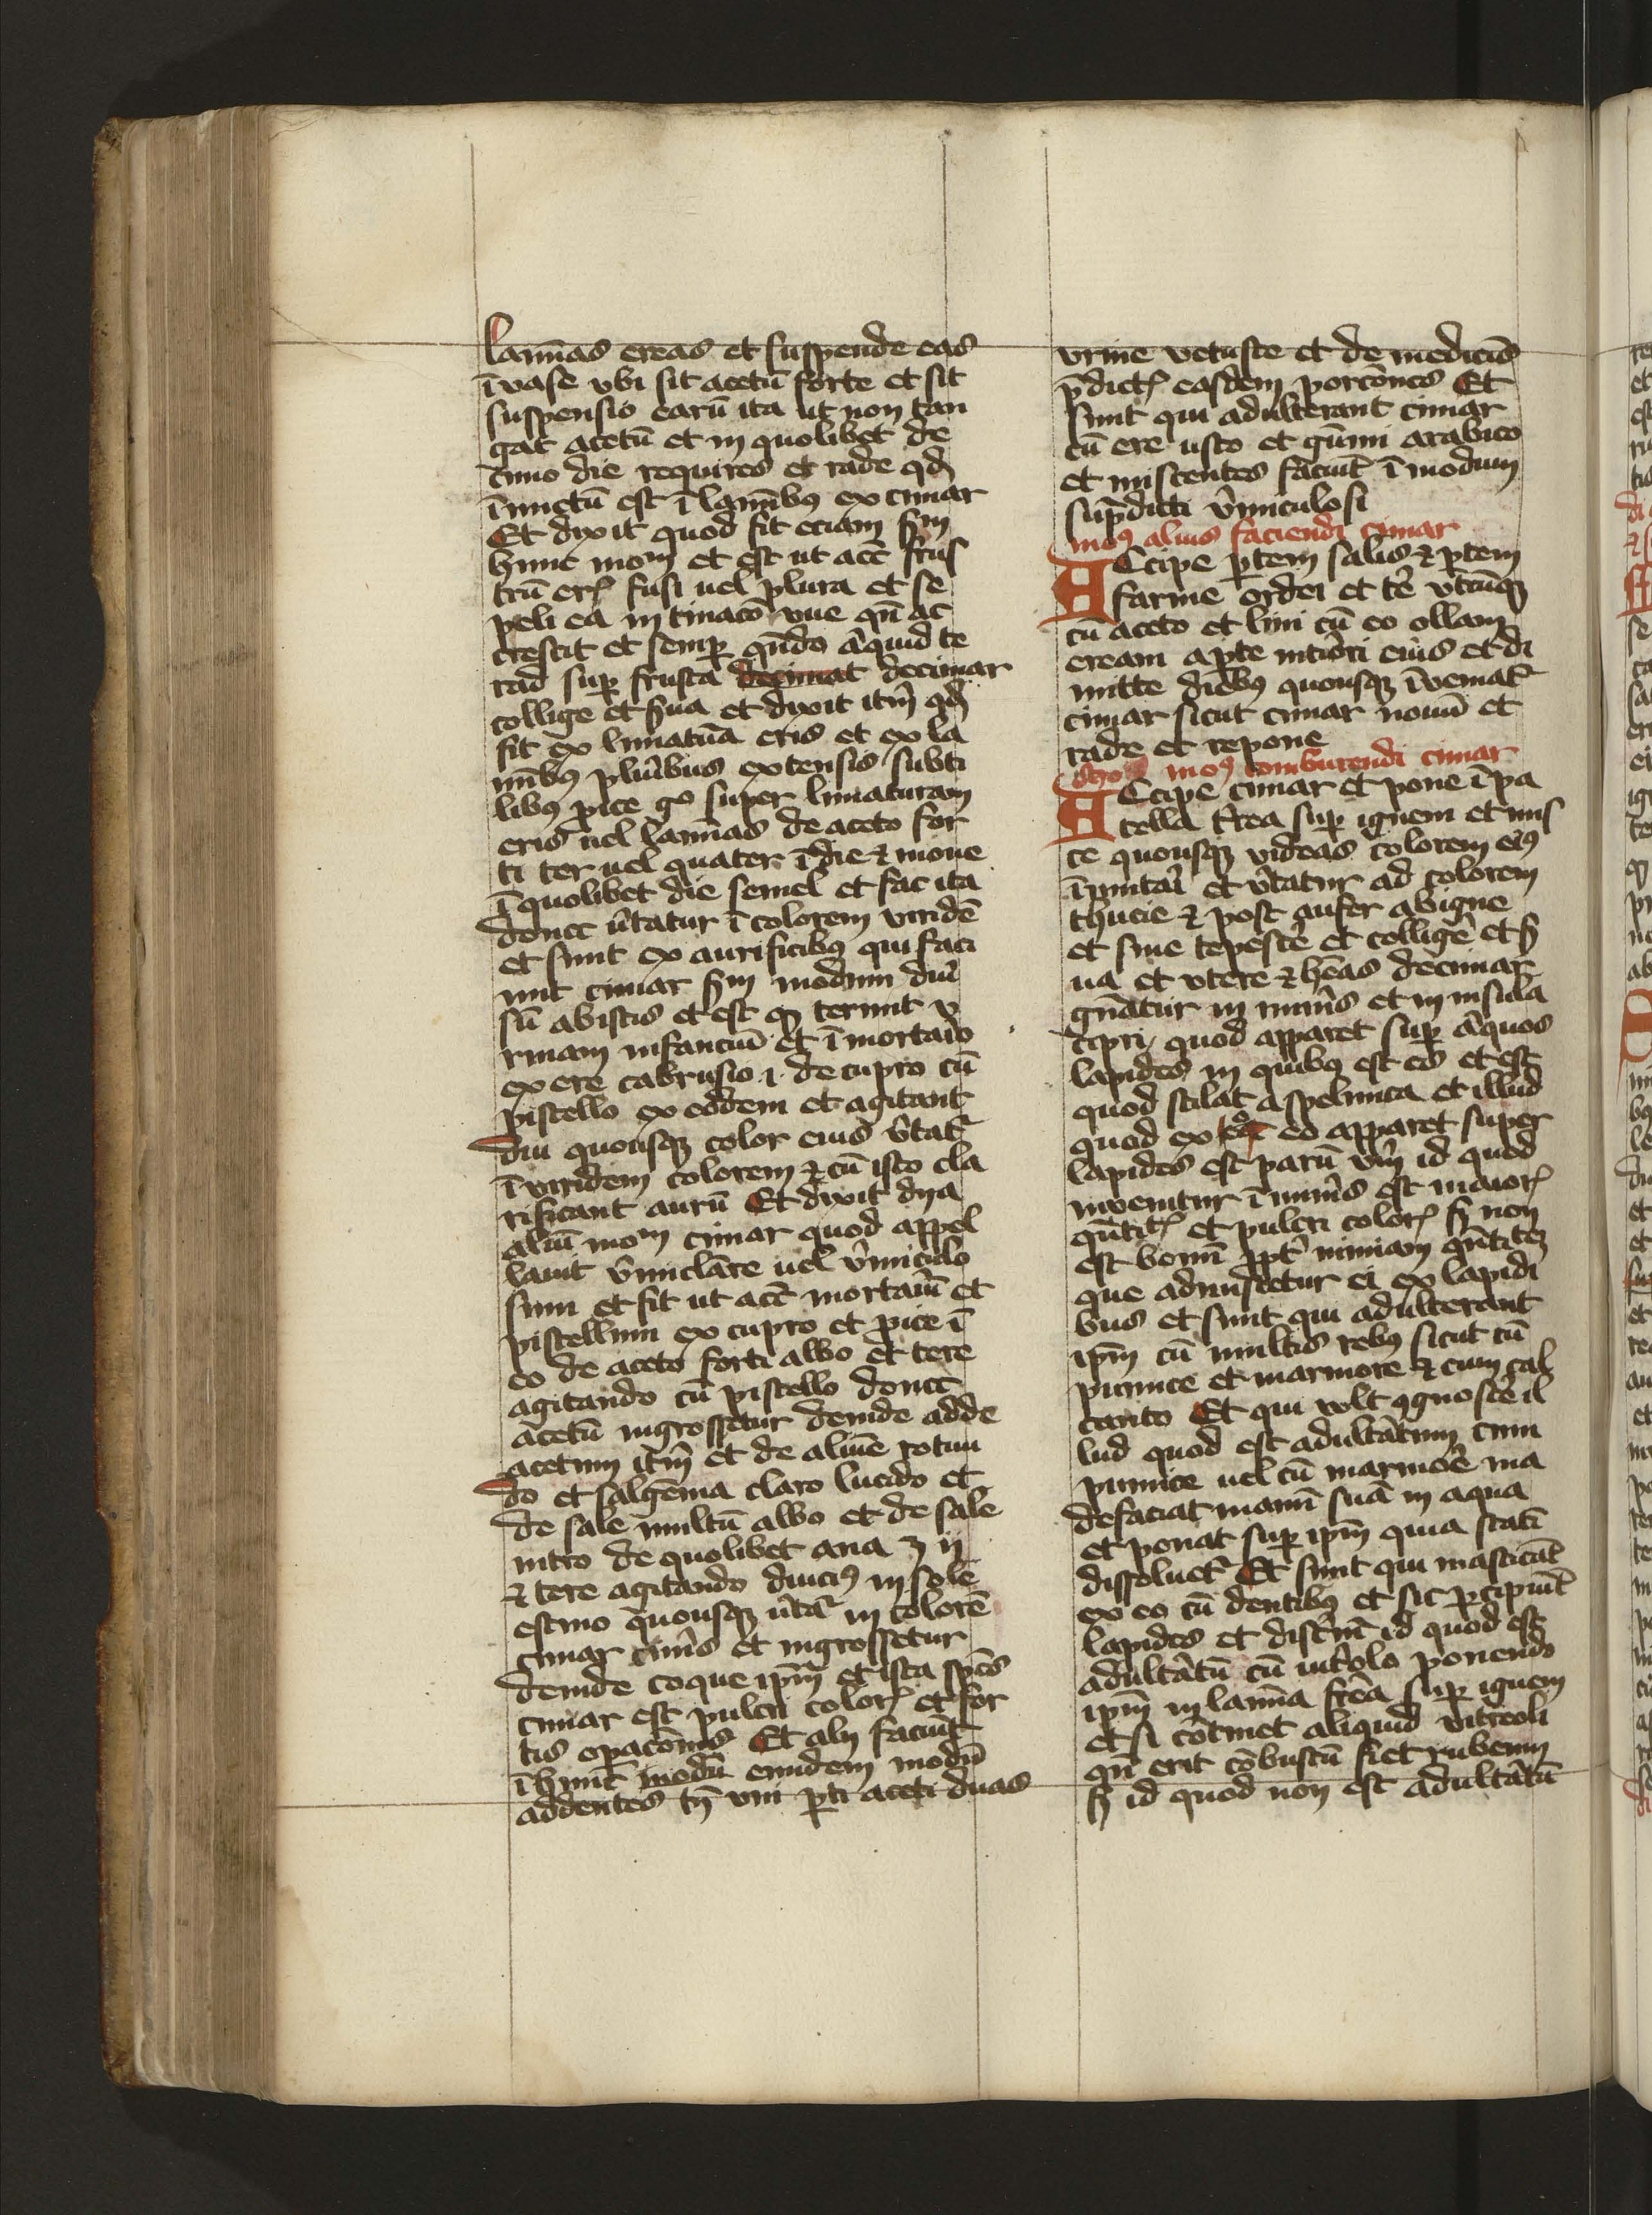 lam̄as ereas et suspende eas
ī vase vbi sit acetū forte et sit
suspensio earū ita ut non tan
gat acetū et in quolibet de
cimo die requires et rade qd̄
īuuetū est ī lamībꝰ ex cimar
Et dixit quod fit eciam s̄m
hunc moꝫ et est ut acc̄ frus
trū erꝭ fusi uel plura et se
peli ea in tinacō vue qn̄ ac
crescit et semꝑ qn̄do aq̄uid te
rad suꝑ frusta decimar
collige et s̄ua et dixit itm̄ qd̄
fit ex limatūa eris et ex la
minībꝰ plurībus extensis subti
libꝰ pice gͦ super limaturam
eris uel lam̄as de aceto for
ti ter uel quater ī die ⁊ moue
ī quolibet die semel et fac ita
donec ūtatur ī colorem viridē
et sunt ex aurificibꝰ qui faci
unt cimar s̄m modum diu̅
sū ab istis et est qꝫ terunt v
rinam infanciū et ī mortaīo
ex ere cabrusio .i. de cupro cū
pistello ex eodem et agitant
diu quousqꝫ color eius v̄tat᷑
ī viridem colorem ⁊ cū isto cla
rificant aurū Et dixit dya
aliū moꝫ cimar quod appel
lauit v̄miclare uel v̄miculo
sum et fit ut acc̄ mortaīū et
pistellum ex cupro et pice ī
eo de aceto forti albo et tere
agitando cū pistello donec
acetū ingrossetur deinde adde
acetum itm̄ et de alume rotun
do et salgēma claro lucido et
de sale multū albo et de sale
nitro de quolibet ana ʒ ij
⁊ tere agitando diuciꝰ in sole
estiuo quousqꝫ ūtat᷑ in colorē
cimar eiūs et ingrossetur
deinde coque ip̄m et ista sp̄es
cimar est pulcri colorꝭ et for
tis opacōnis Et alij faciūt
ī hunc modū eundem modū
addentes tn̄ vni ꝑti aceti duas
vrine vetuste et de medicīs
p̄dictꝭ easdem porcōnes Et
sunt qui adulterant cimar
cū ere usto et gūmi arabico
et miscentes faciūt ī modum
sup̄dicti v̄miculosi
moꝰ alius faciendi cimar
Accipe ꝑtem salis ⁊ ꝑtem
farine ordei et te᷑ vt̄ūqꝫ
cū aceto et lini cū eo ollam
eream a ꝑte int̄iori eius et di
mitte diebꝰ quousqꝫ īueniat᷑
cimar sicut cimar nouū et
rade et repone
moꝰ comburendi cimar
Accipe cimar et pone ī pa
tella f̄rea suꝑ ignem et mis
ce quousqꝫ videas colorem eiꝰ
īmutaī et v̄tatur ad colorem
thucie ⁊ post aufer ab igne
et sine tepesce᷑ et collige et s̄
ua et vtere ⁊ hēas decimar
gn̄atur in mineīs et in insula
cipri quod apparet suꝑ aq̄uos
lapides in quibꝰ est es et est
quod stilat a spelunca et illud
quod ex eo apparet super
lapides est parū vm̄ id quod
inuenitur ī mineīs est maiorꝭ
qn̄titꝭ et pulcri colorꝭ sꝫ non
est bonū ꝓpt᷑ nimiam qn̄titeꝫ
que admiscetur ei ex lapidi
bus et sunt qui adulterant
ip̄m cū multis rebꝰ sicut cū
pumice et marmore ⁊ cum cal
canto Et qui volt ꝯgnosce᷑ il
lud quod est adultāatum cum
pumice uel cū marmoē ma
defaciat manū suā in aqua
et ponat suꝑ ip̄m quia statī
dissoluet᷑ Et sunt qui masticāt
ex eo cū dentibꝰ et sic ꝑcipiūt
lapides et discūt id quod est
adultātū cū vit̄olo ponendo
ip̄m in lam̄a f̄rea suꝑ ignem
et si cōtinet aliquid vitreoli
qn̄ erit cōbustū fiet rubeum
sꝫ id quod non est adultātū